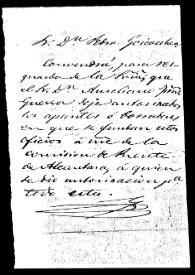 Sr. Dn Pedro
Convendrá, para res
guardo de la Srta, que
el Sr. Dn Aureliano
Guerra deje autorizados
los apuntes ó borradores
en que se fundan estos
oficios á nre de la
comision de Puente
de Alcántara, á quien
se dió autorizacion pa
todo esto.